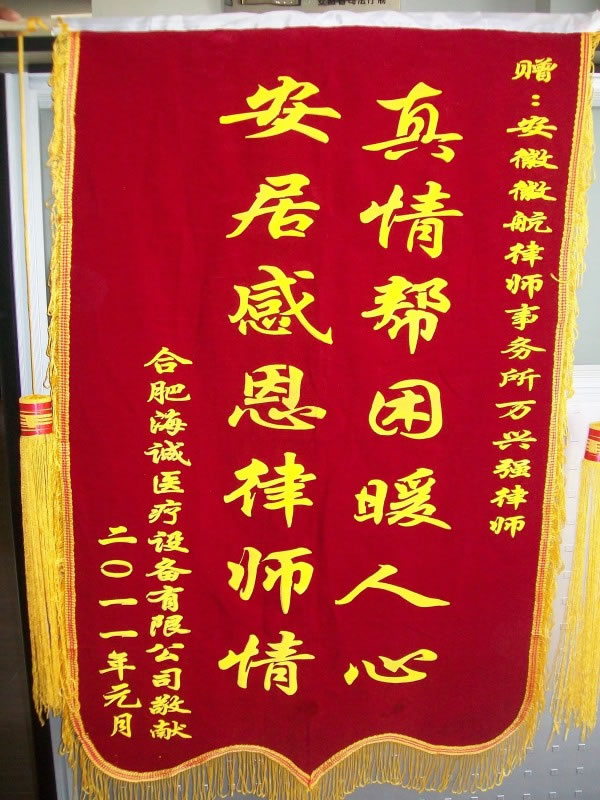 赠：安徽徽航律师事务所万兴强律师
真情帮困暖人心
安居感恩律师情
合肥海诚医疗设备有限公司敬献
二〇一一年元月